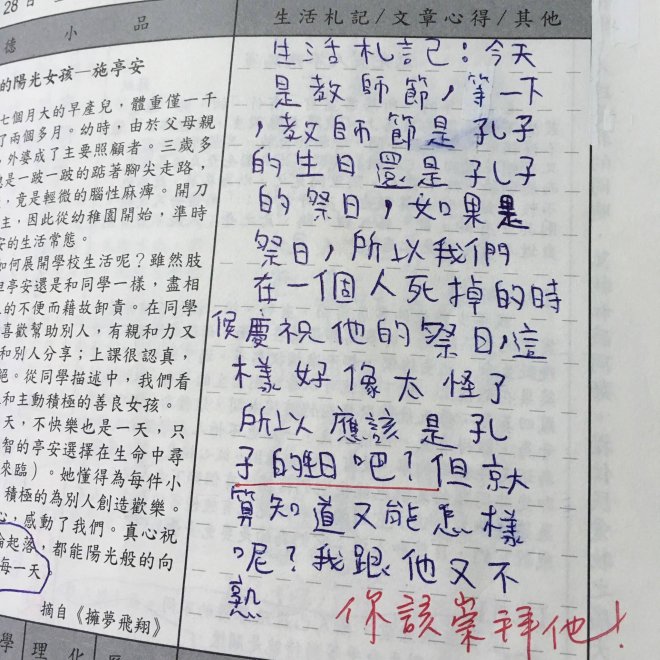 28 日
生活札記/文章心得/其他
德 小 品
的陽光女孩—施亭安
七個月大的早產兒，體重僅一千
了兩個多月。幼時，由於父母親
，外婆成了主要照顧者。三歲多
總是一跛一跛的踮著腳尖走路，
，竟是輕微的腦性麻痺。開刀
主，因此從幼稚園開始，準時
安的生活常態。
如何展開學校生活呢？雖然肢
但亭安還是和同學一樣，盡相
上的不便而藉故卸責。在同學
喜歡幫助別人，有親和力又
和別人分享；上課很認真，
。從同學描述中，我們看
和主動積極的善良女孩。
天，不快樂也是一天，只
智的亭安選擇在生命中尋
來臨）。她懂得為每件小
積極的為別人創造歡樂。
心，感動了我們。真心祝
起落，都能陽光般的向
每一天
摘自《擁夢飛翔》
學 理 化
生活札記：今天
是教師節，等一下
，教師節是孔子
的生日還是孔子
的祭日，如果是
祭日，所以我們
在一個人死掉的時
候慶祝他的祭日，這
樣好像太怪了
所以應該是孔
子的生日吧？但就
算知道又能怎樣
呢？我跟他又不
熟
你該崇拜他！